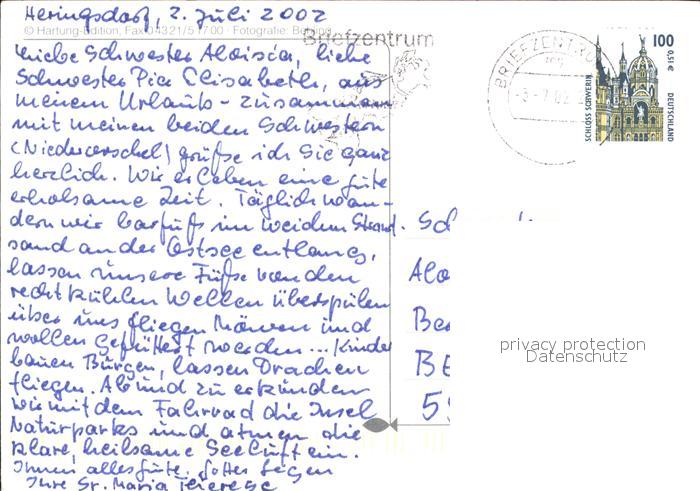 Heringsdorf, 2. Juli 2002
© Hartung-Edition, Fax 04321/51700 · Fotografie:
Briefzentrum
Liebe Schwester Aloisia, liebe
Schwester Pia Elisabeth, aus
meinem Urlaub - zusammen
mit meinen beiden Schwestern
(Niederorschel) grüße ich Sie ganz
herzlich. Wir erleben eine gute
erholsame Zeit. Täglich wan-
dern wir barfuß im weichen Strand-
sand an der Ostsee entlang,
lassen unsere Füße von den
recht kühlen Wellen überspülen
über uns fliegen Möwen und
wollen gefüttert werden... Kinder
bauen Burgen, lassen Drachen
fliegen. Ab und zu erkunden
wir mit dem Fahrrad die Insel
Naturparks und atmen die
klare, heilsame Seeluft ein.
Ihnen alles Gute, Gottes Segen
Ihre Sr. Maria Therese
BRIEFZENTRU
-3-7.02
100
0,51€
SCHLOSS SCHWERIN
DEUTSCHLAND
Sch
Alo
Be
BE
5
privacy protection
Datenschutz